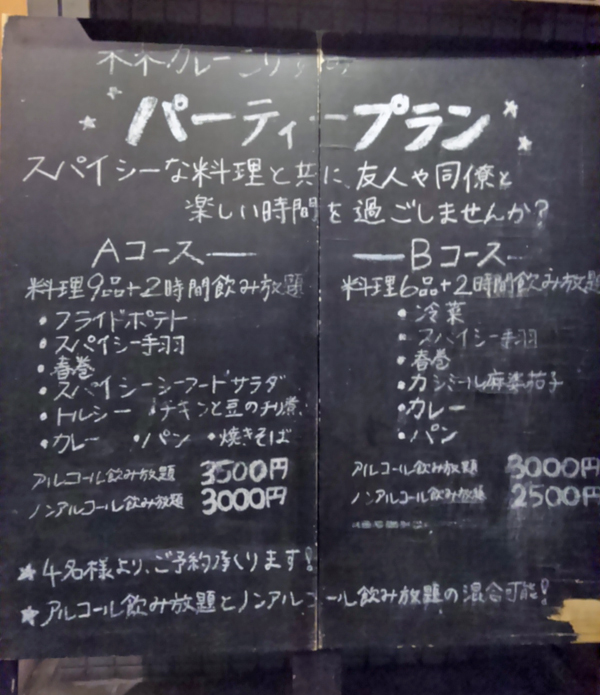 カレー
パーティープラン
スパイシーな料理と共に友人や同僚と
楽しい時間を過ごしませんか?
Aコース
料理9品+2時間飲み放題
・フライドポテト
・スパイシー手羽
・春巻
・スパイシーシーフードサラダ
・トルシー ・チキンと豆のチリ煮
・カレー ・パン ・焼きそば
アルコール飲み放題 3500円
ノンアルコール飲み放題 3000円
Bコース
料理6品+2時間飲み放題
・冷菜
・スパイシー手羽
・春巻
・カシミール麻婆茄子
・カレー
・パン
アルコール飲み放題 3000円
ノンアルコール飲み放題 2500円
★4名様より、ご予約承ります!
★アルコール飲み放題とノンアルコール飲み放題の混合可能!